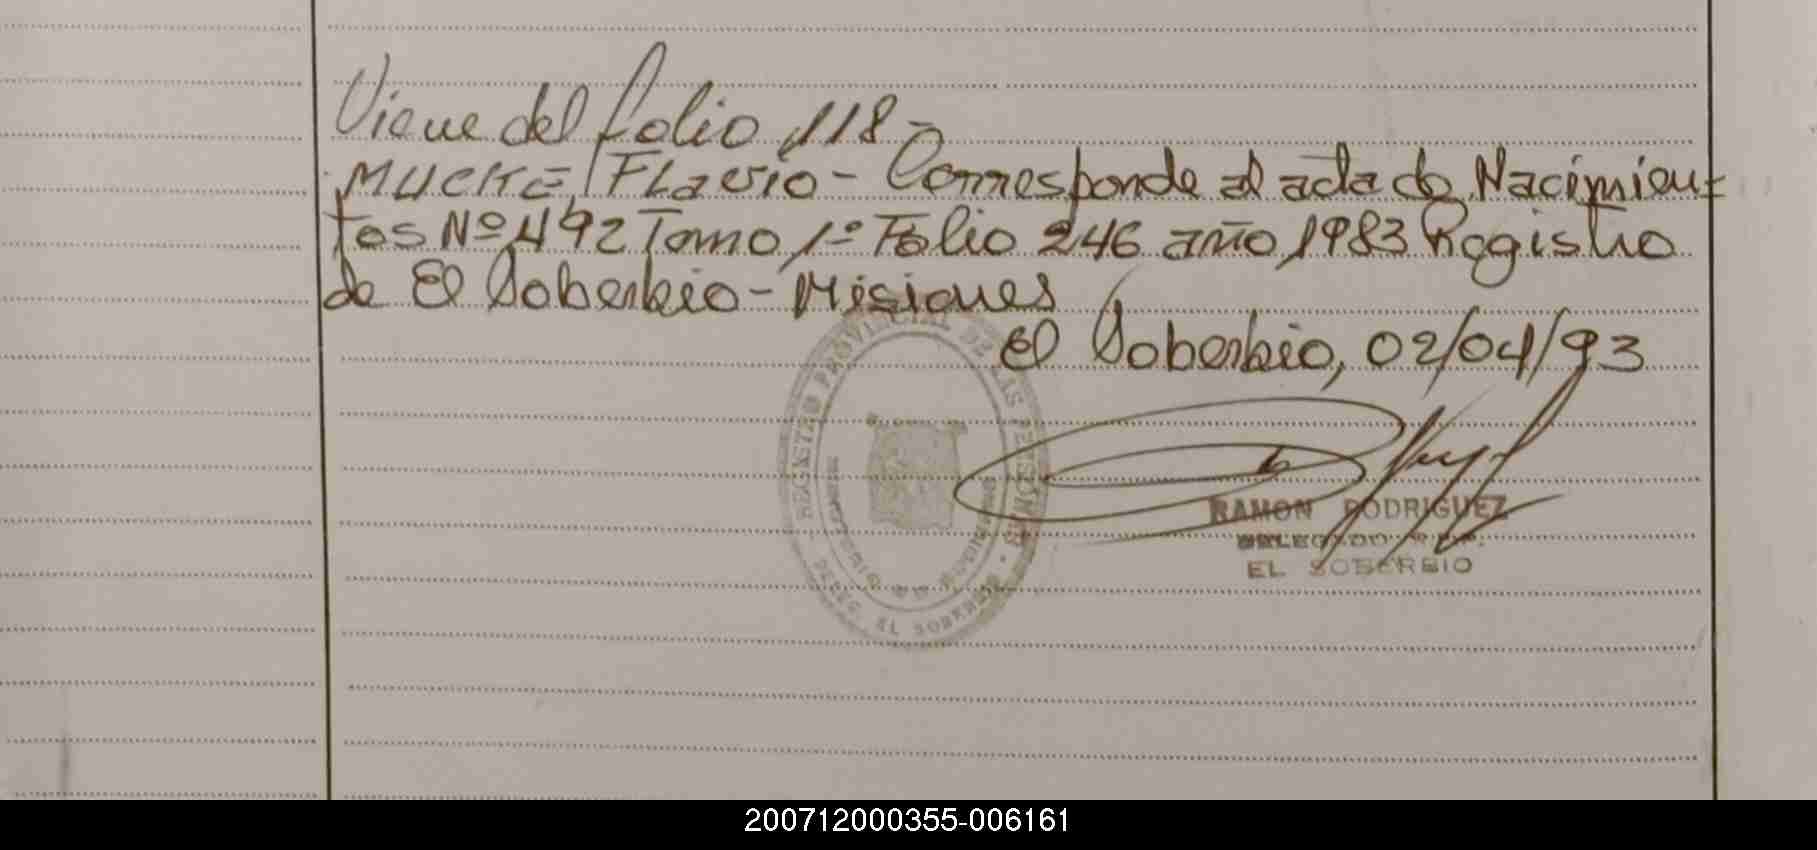 Viene del folio 118 -
MUCKE, Flavio - Corresponde al acta de Nacimien-
tos Nº 492 Tomo 1º Folio 246 año 1983 Registro
de El Soberbio - Misiones
El Soberbio, 02/04/93
REGISTRO PROVINCIAL DE LAS PERSONAS
DELEG. EL SOBERBIO
RAMON RODRIGUEZ
DELEGADO R.P.P.
EL SOBERBIO
200712000355-006161